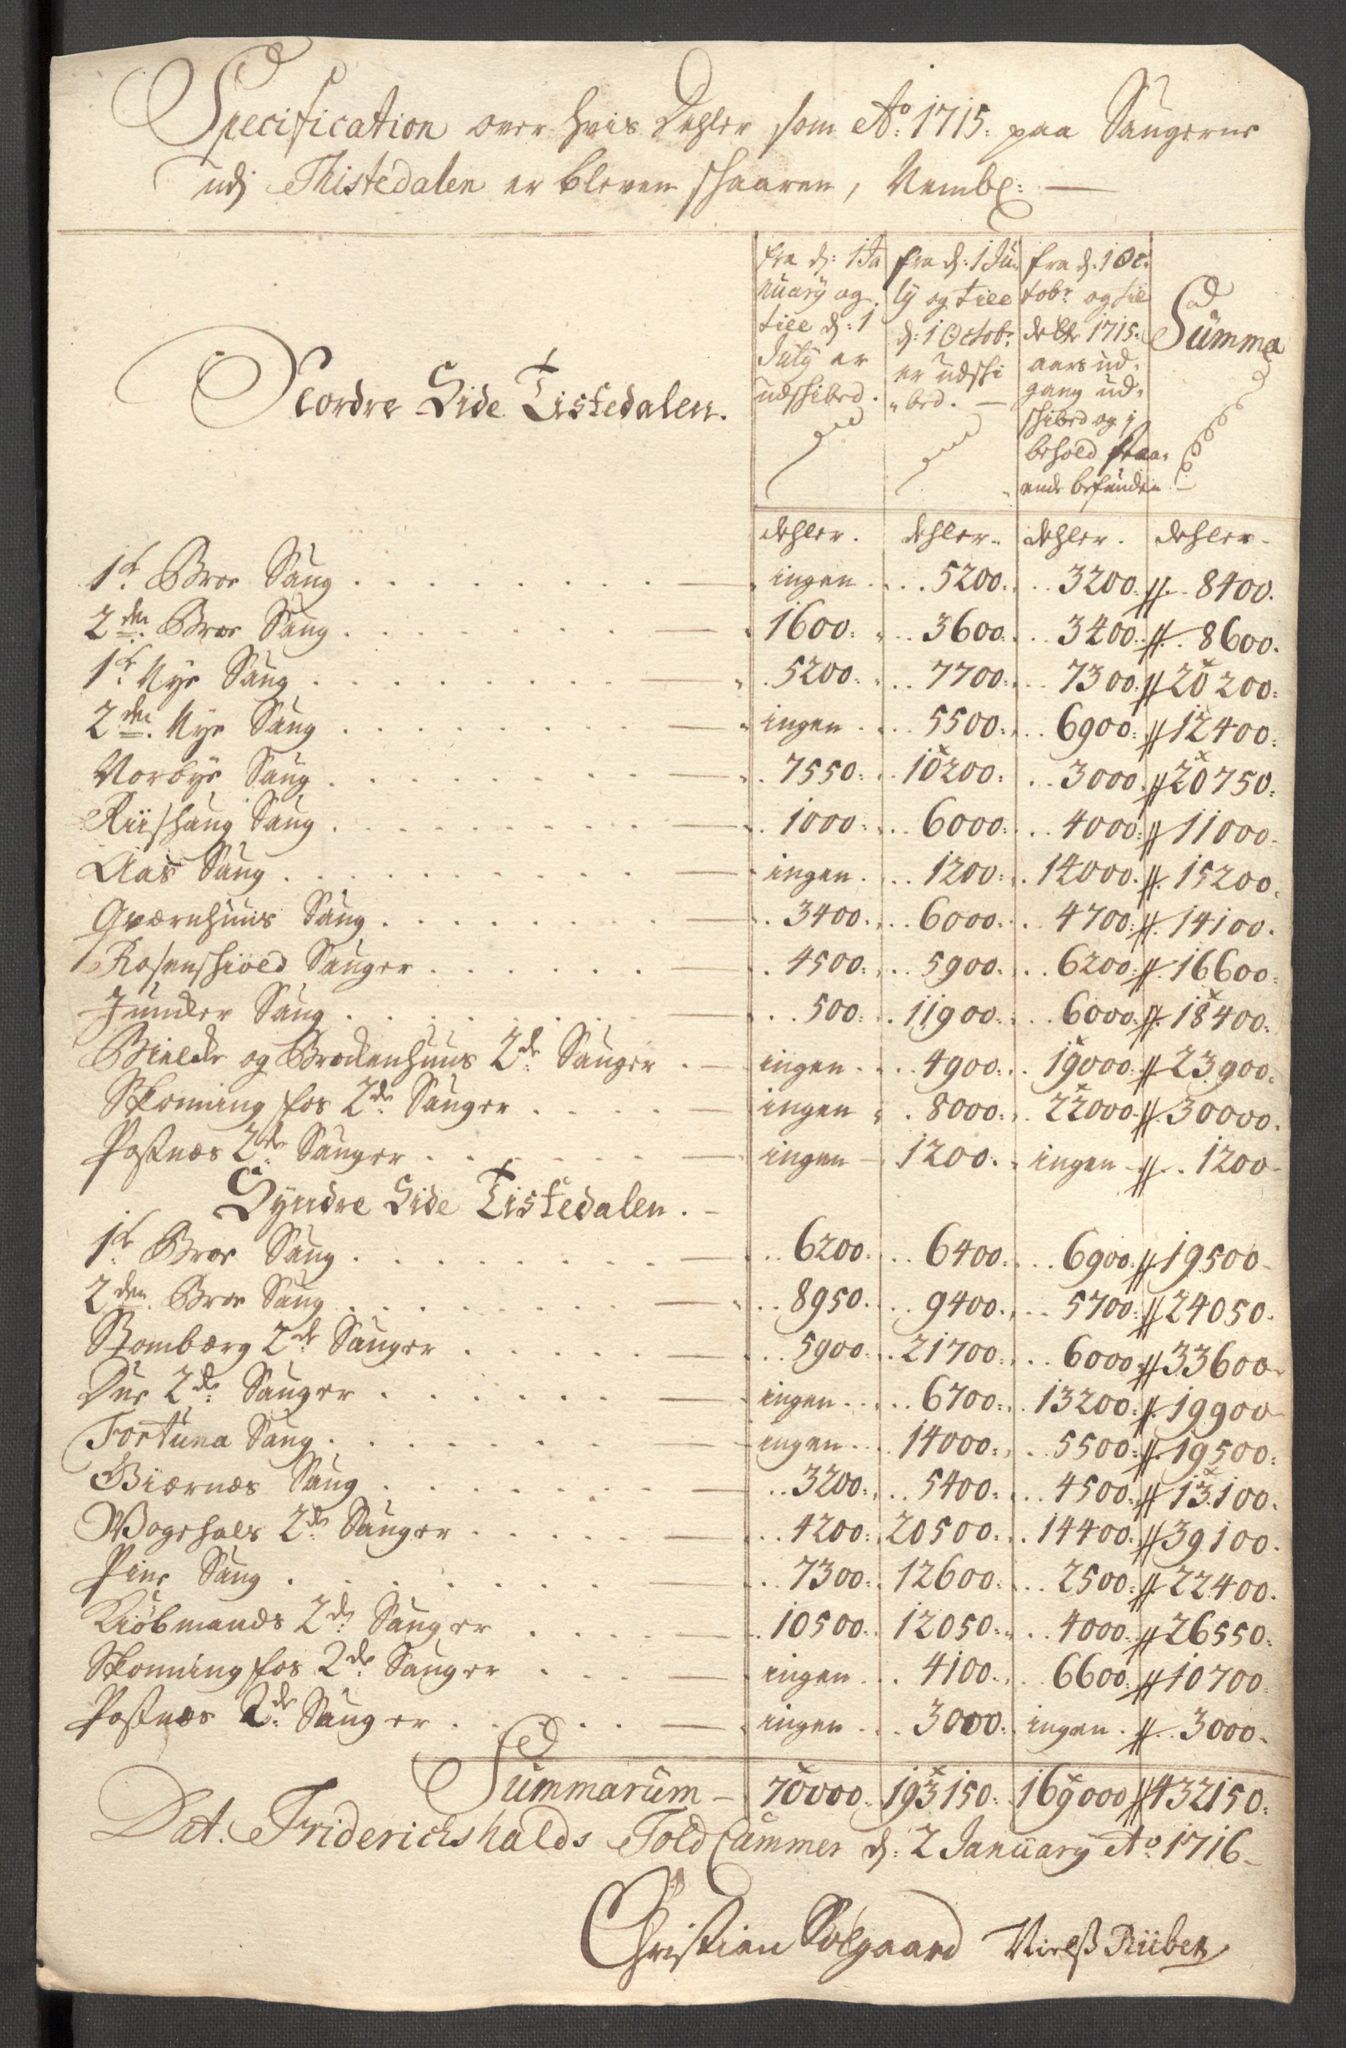 Specification over hvis Dehler som Ao: 1715: paa Saugerne
udj Thistedalen er bleven skaaren, Nembl: —
Nordre Side Tistedalen.
fra d: 1 Ja
nuary og
till d: 1
July er
udskibed.
fra d: 1 Ju
ly og till
d: 1 Octob:
er udski
bed. —
fra d. 1 Oc:
tobr og til
dette 1715:
aars ud,
gang ud,
skibed og j
behold staa,
ende befunden
Summa
dehler. dehler. dehler. dehler.
1st Broe Saug . . . — ingen . . 5200: . . 3200: // 8400.
2den Broe Saug . . . — 1600: . . 3600: . . 3400: // 8600.
1st Nye Saug . . . — 5200: . . 7700: . . 7300: // 20200:
2den Nye Saug . . . — ingen . . 5500: . . 6900: // 12400:
Norbye Saug . . . — 7550: . . 10200: . . 3000: // 20750:
Riishaug Saug . . . — 1000: . . 6000: . . 4000: // 11000.
Aas Saug . . . — ingen . . 1200: . . 14000: // 15200.
Qværnhuus Saug . . . — 3400: . . 6000: . . 4700: // 14100.
Rosenskiold Sauger . . . — 4500: . . 5900: . . 6200: // 16600:
Juncker Saug . . . — 500: . . 11900: . . 6000: // 18400:
Bielcke og Brockenhuus 2de Sauger . — ingen . . 4900: . . 19000: // 23900:
Skonning fos 2de Sauger . . . — ingen . 8000: . . 22000: // 30000.
Postnæs 2de Sauger . . . — ingen — 1200. . ingen — // 1200 —
Syndre Side Tistedalen. —
1st Broe Saug . . . — 6200: . . 6400: . . 6900: // 19500 —
2den Broe Saug . . . — 8950: . . 9400: . . 5700: // 24050.
2de Sauger . . . — 5900: . . 21700: . . 6000: // 33600 —
Due 2de Sauger . . . — ingen . . 6700: . . 13200: // 19900
Fortuna Saug . . . — ingen . . 14000: . . 5500: // 19500:
Biærnæs Saug . . . — 3200: . . 5400: . . 4500: // 13100.
Wogehals 2de Sauger . . . — 4200: . . 20500: . . 14400: // 39100.
Pine Saug . . . — 7300: . . 12600: . . 2500: // 22400.
Kiøbmands 2de Sauger . . . — 10500: . . 12050: . . 4000: // 26550:
Skonning fos 2de Sauger . . . — ingen . . 4100: . . 6600: // 10700:
Postnæs 2de Sauger . . . — ingen . . 3000: . ingen . // 3000.
Summarum — 70000. 193150: 169000 // 432150:
Dat. Friderichshalds Told Cammer d: 2 January Ao 1716 —
Christian Solgaard Nielß Rüber